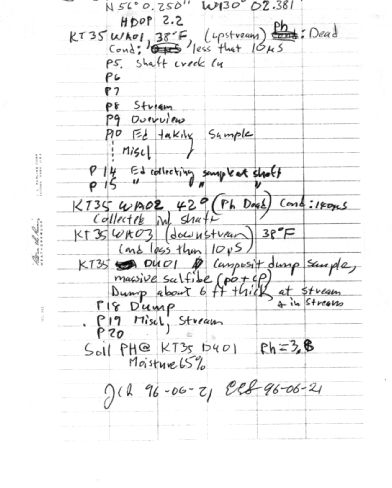 N 56° 0.250" W130° 02.381
HDOP 2.2
KT35 WA01, 38°F, (upstream) Ph : Dead
Cond: less that 10 µS
P5. Shaft creek
P6
P7
P8 Stream
P9 Overview
P10 Ed taking Sample
Miscl
P14 Ed collecting sample at shaft
P15 " " "
KT35 WA02 42° (Ph Dead) Cond: 140µs
Collected in shaft
KT35 WA03 (downstream) 38°F
Cond less than 10 µS
KT35 DU01 Composit dump sample,
massive sulfide (po + cp)
Dump about 6 ft thick at stream
+ in stream
P18 Dump
P19 Miscl, Stream
P20
Soil PH@ KT35 DU01 Ph = 3.8
Moisture 65%
JCR 96-06-21 EGS 96-06-21